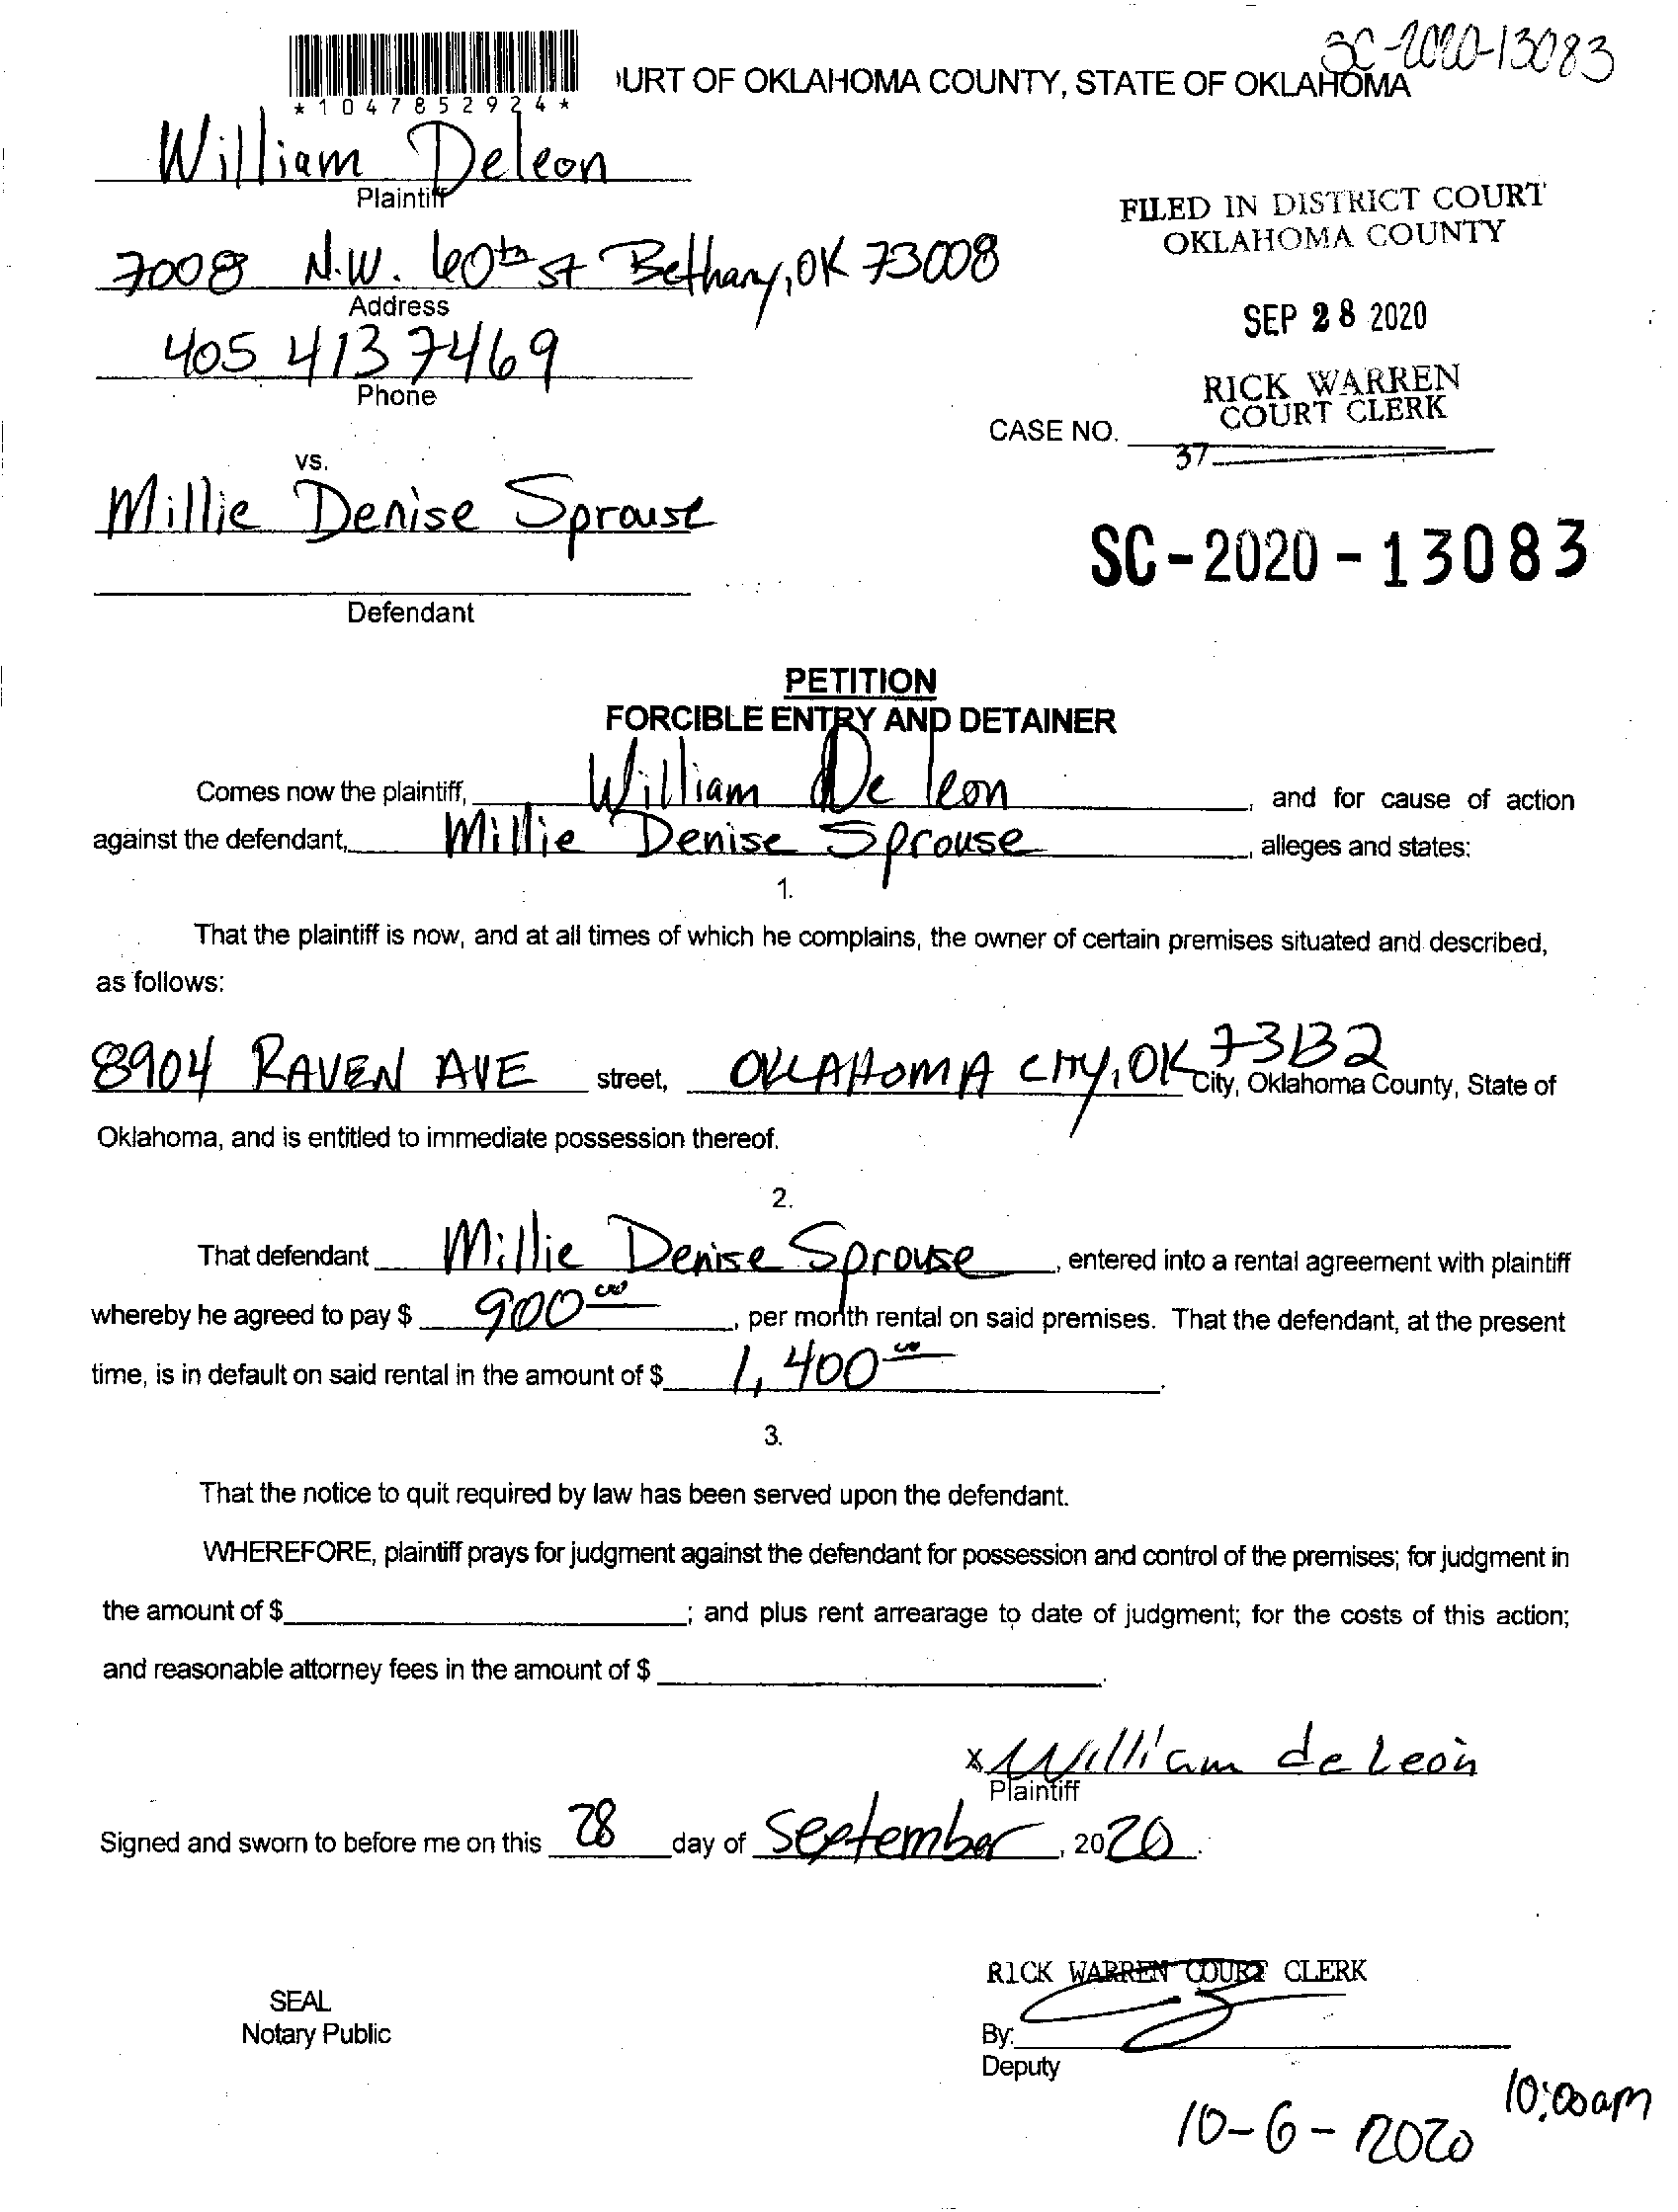 SC-2020-13083
*1047852924*
URT OF OKLAHOMA COUNTY, STATE OF OKLAHOMA
William Deleon
Plaintiff
FILED IN DISTRICT COURT
OKLAHOMA COUNTY
7008 N.W. 60th st Bethany, OK 73008
Address
SEP 28 2020
405 413 7469
Phone
RICK WARREN
COURT CLERK
CASE NO.
37
vs.
Millie Denise Sprouse
SC-2020-13083
Defendant
PETITION
FORCIBLE ENTRY AND DETAINER
Comes now the plaintiff, William De leon, and for cause of action
against the defendant, Millie Denise Sprouse, alleges and states:
1.
That the plaintiff is now, and at all times of which he complains, the owner of certain premises situated and described,
as follows:
8904 RAVEN AVE street, OKLAHOMA CITY, OK 73132 City, Oklahoma County, State of
Oklahoma, and is entitled to immediate possession thereof.
2.
That defendant Millie Denise Sprouse, entered into a rental agreement with plaintiff
whereby he agreed to pay $ 900.00, per month rental on said premises. That the defendant, at the present
time, is in default on said rental in the amount of $ 1,400.00.
3.
That the notice to quit required by law has been served upon the defendant.
WHEREFORE, plaintiff prays for judgment against the defendant for possession and control of the premises; for judgment in
the amount of $ ; and plus rent arrearage to date of judgment; for the costs of this action;
and reasonable attorney fees in the amount of $ .
x William de Leon
Plaintiff
Signed and sworn to before me on this 28 day of September, 2020.
RICK WARREN COURT CLERK
SEAL
Notary Public
By:
Deputy
10:00am
10-6-2020